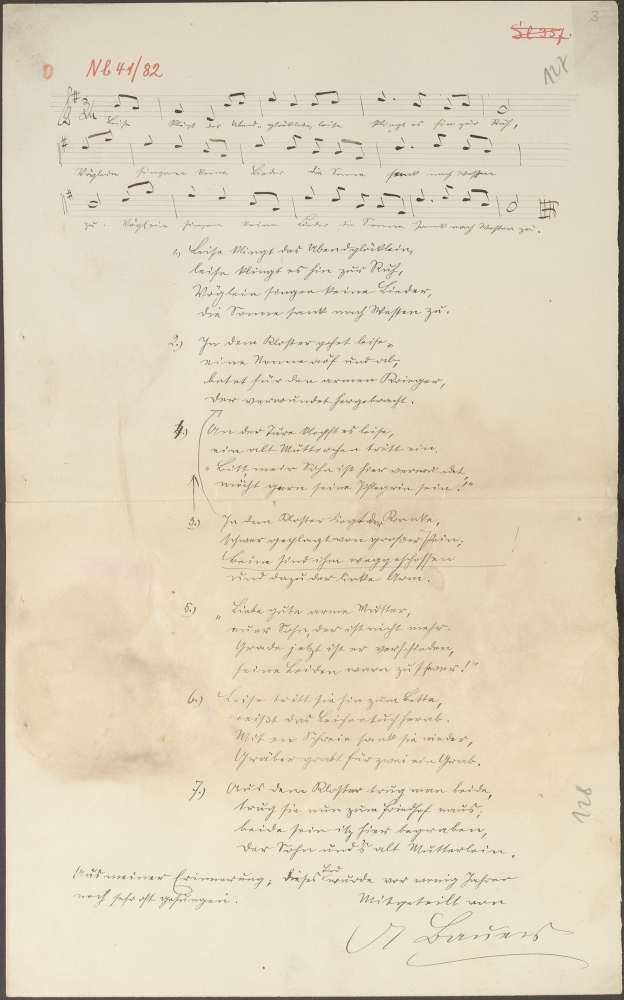 3
Sl 357.
Nb 41/82
128
Leise klingt das Abendglöcklein, leise klingt es hin zur Ruh,
Vöglein singen keine Lieder die Sonne sank nach Westen
zu. Vöglein singen keine Lieder die Sonne sank nach Westen zu.
1, Leise klingt das Abendglöcklein,
leise klingt es hin zur Ruh,
Vöglein singen keine Lieder,
die Sonne sank nach Westen zu.
2.) In dem Kloster gehet leise,
eine Nonne auf und ab,
betet für den armen Krieger,
der verwundet hergebracht.
4.) An der Türe klopft es leise,
ein alt Mütterchen tritt ein.
"Bitt, mein Sohn ist hier verwundet
möcht gern seine Pflegrin sein!"
3.) In dem Kloster liegt der Kranke,
schwer geplagt von großer Pein;
Beine sind ihm weggeschossen
und dazu der linke Arm.
5.) "Liebe gute arme Mutter,
euer Sohn, der ist nicht mehr.
Grade jetzt ist er verschieden,
seine Leiden waren zu schwer!"
6.) Leise tritt sie hin zum Bette,
reißt das Leichentuch herab.
Mit en Schrein sank sie nieder,
Gräber grabt für zwei ein Grab.
7.) Aus dem Kloster trug man beide,
trug sie nun zum Friedhof naus;
beide sein itz hier begraben,
der Sohn und's alt Mütterlein.
128
Aus meiner Erinnerung; dieses Lied wurde vor wenig Jahren
noch sehr oft gesungen. Mitgeteilt von
A Bauers